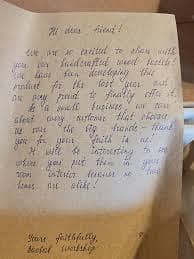 Hi dear friend!
We are so excited to share with
you our handcrafted wood
We have been developing this
product for the last year and
are very proud to finally offer it.
As a small business, we care
about every customer that chooses
us over the big brands - thank
you for your faith in us!
It will be interesting to see
where you put them in your
own interior because no two
are alike!
Yours faithfully,
workshop